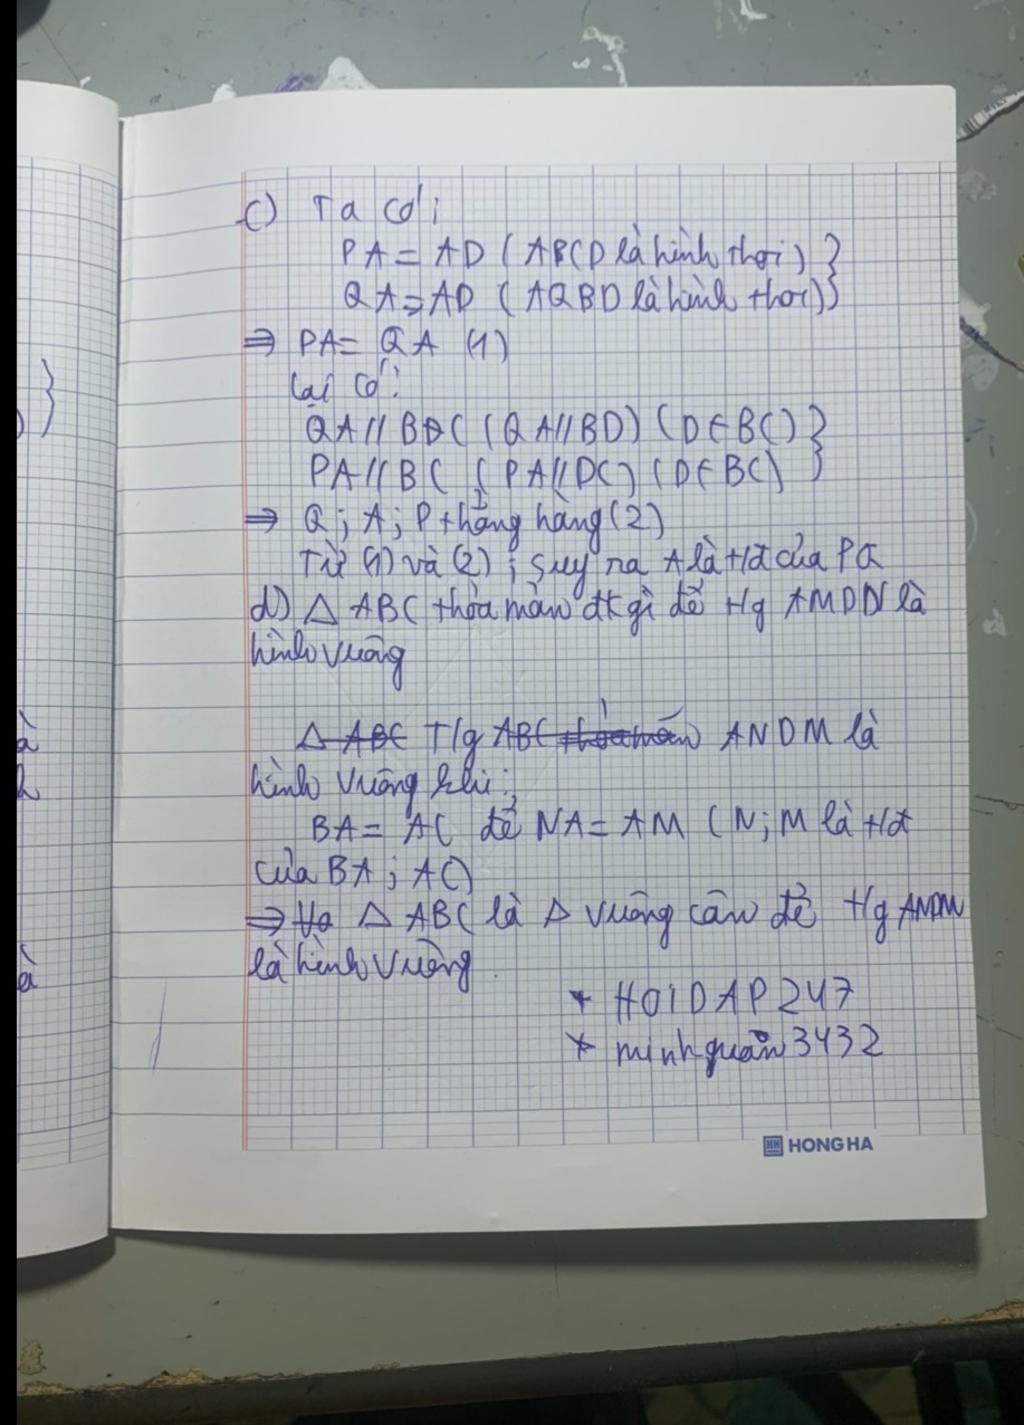 c) Ta có:
PA = AD (ABCD là hình thoi) }
QA = AD (AQBD là hình thoi) }
⇒ PA = QA (1)
Lại có:
QA // BC (QA // BD) (D ∈ BC) }
PA // BC (PA // DC) (D ∈ BC) }
⇒ Q; A; P thẳng hàng (2)
Từ (1) và (2); suy ra A là t/đ của PQ
d) △ ABC thỏa mãn đk gì để t/g AMDN là
hình vuông
T/g ANDM là
hình vuông khi:
BA = AC để NA = AM (N; M là t/đ
của BA; AC)
⇒ △ ABC là △ vuông cân để t/g ANDM
là hình vuông.
* HOIDAP247
* minhquân3432
HH HONG HA